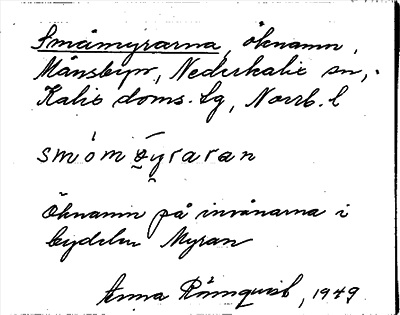 Småmyrarna, öknamn,
Månsbyn, Nederkalix sn,
Kalix doms. lg, Norrb. l
smómyraran
Öknamn på invånarna i
bydelen Myran
Anna Rönnqvist, 1949